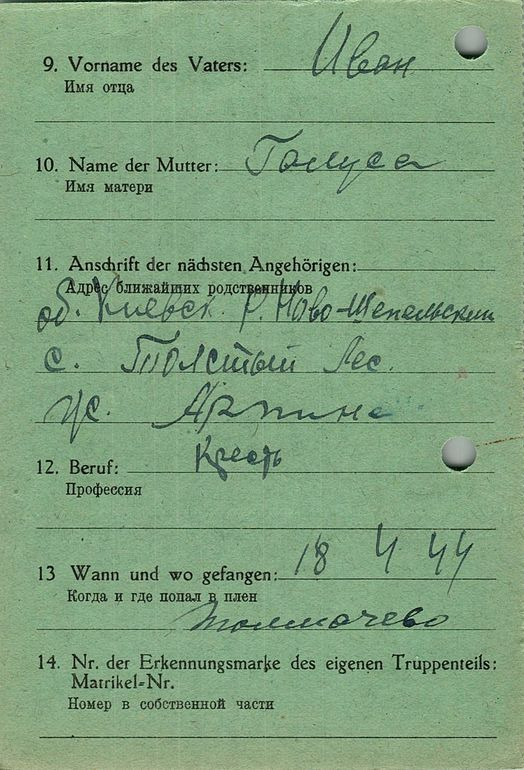 9. Vorname des Vaters: Иван
Имя отца
10. Name der Mutter:
Имя матери
11. Anschrift der nächsten Angehörigen:
Адрес ближайших родственников
об. Киевск. Р. Ново-Шепельский
с. Толстый Лес.
12. Beruf: Кресть
Профессия
13 Wann und wo gefangen: 18 4 44
Когда и где попал в плен
Толмачево
14. Nr. der Erkennungsmarke des eigenen Truppenteils:
Matrikel-Nr.
Номер в собственной части